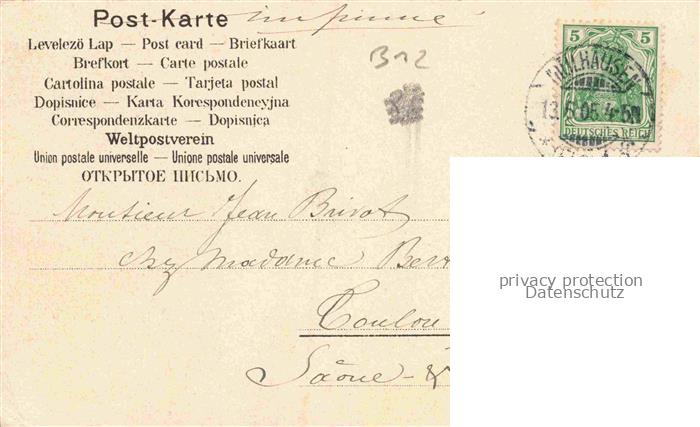 Post-Karte imprimé
Levelezö Lap — Post card — Briefkaart
Brefkort — Carte postale
Cartolina postale — Tarjeta postal
Dopisnice — Karta Korespondencyjna
Correspondenzkarte — Dopisnica
Weltpostverein
Union postale universelle — Unione postale universale
ОТКРЫТОЕ ПИСЬМО.
B12
5 5
MÜLHAUSEN
DEUTSCHES REICH
Monsieur Jean Brivot
chez Madame
Toulou
Saône - &
privacy protection
Datenschutz